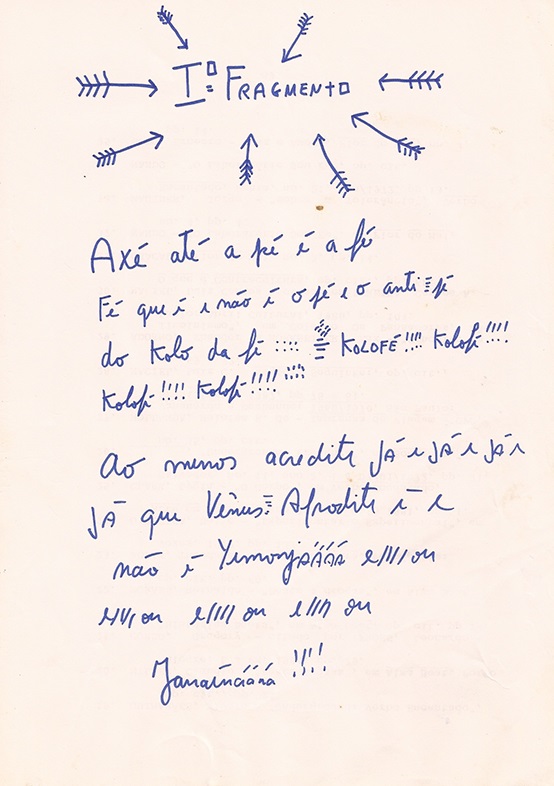 Iº FRAGMENTO
Axé até a pé é a fé
Fé que é e não é o fé e o anti≡fé
do Kolo da fé :::: ≡ KOLOFÉ!!!! Kolofé!!!!
Kolofé!!!! Kolofé!!!!
Ao menos acredite JÁ e JÁ e JÁ e
JÁ que Vênus≡Afrodite é e
não é Yemonjáááá e////ou
e///ou e////ou e////ou
Janaínáááá!!!!